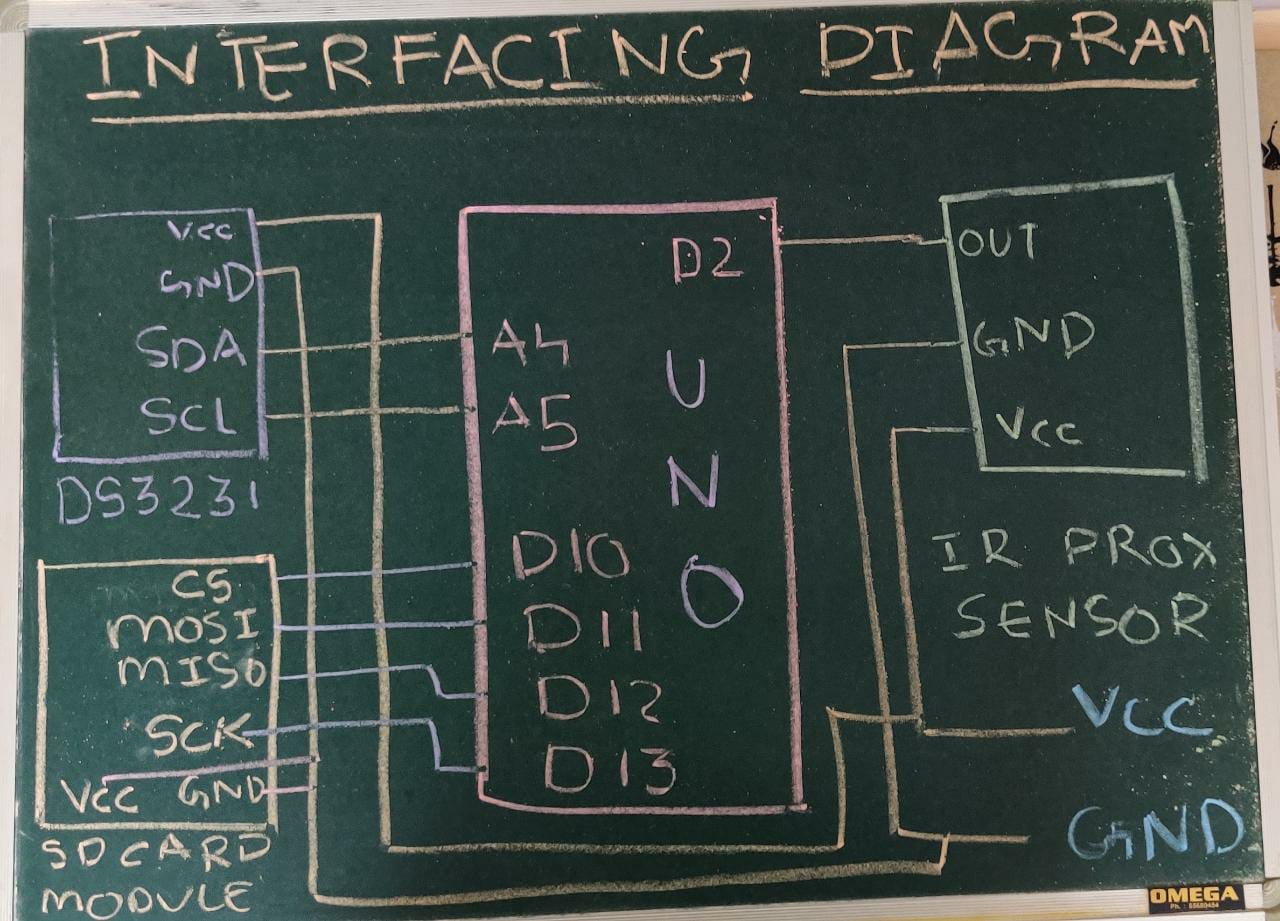 INTERFACING DIAGRAM
Vcc
GND
SDA
SCL
DS3231
CS
MOSI
MISO
SCK
Vcc GND
SD CARD
MODULE
D2
A4
A5
UNO
D10
D11
D12
D13
OUT
GND
Vcc
IR PROX
SENSOR
VCC
GND
OMEGA